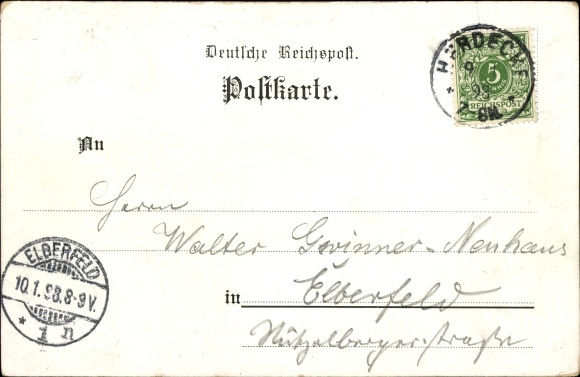 Deutsche Reichspost.
Postkarte.
HERDECKE
9
1
98
7-8N.
5
PFENNIG
REICHSPOST
An
Herrn
Walter Gminner-Neuhaus
in Elberfeld
Nützelbergerstraße
ELBERFELD
10.1.98.8-9V.
* 1 n